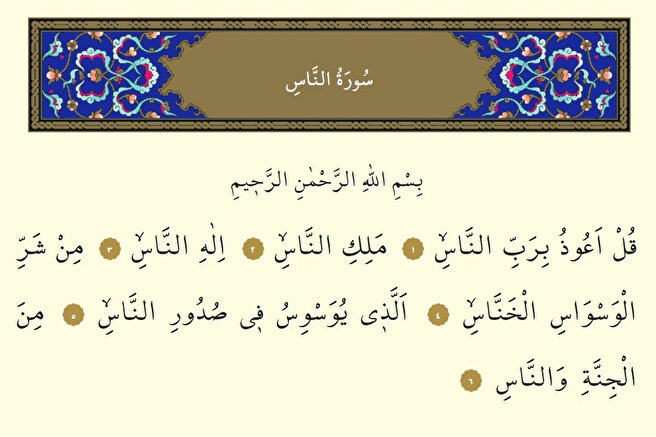 سُورَةُ النَّاسِ
بِسْمِ اللهِ الرَّحْمٰنِ الرَّح۪يمِ
قُلْ اَعُوذُ بِرَبِّ النَّاسِۙ ١ مَلِكِ النَّاسِۙ ٢ اِلٰهِ النَّاسِۙ ٣ مِنْ شَرِّ
الْوَسْوَاسِ الْخَنَّاسِۙ ٤ اَلَّذ۪ي يُوَسْوِسُ ف۪ي صُدُورِ النَّاسِۙ ٥ مِنَ
الْجِنَّةِ وَالنَّاسِ ٦